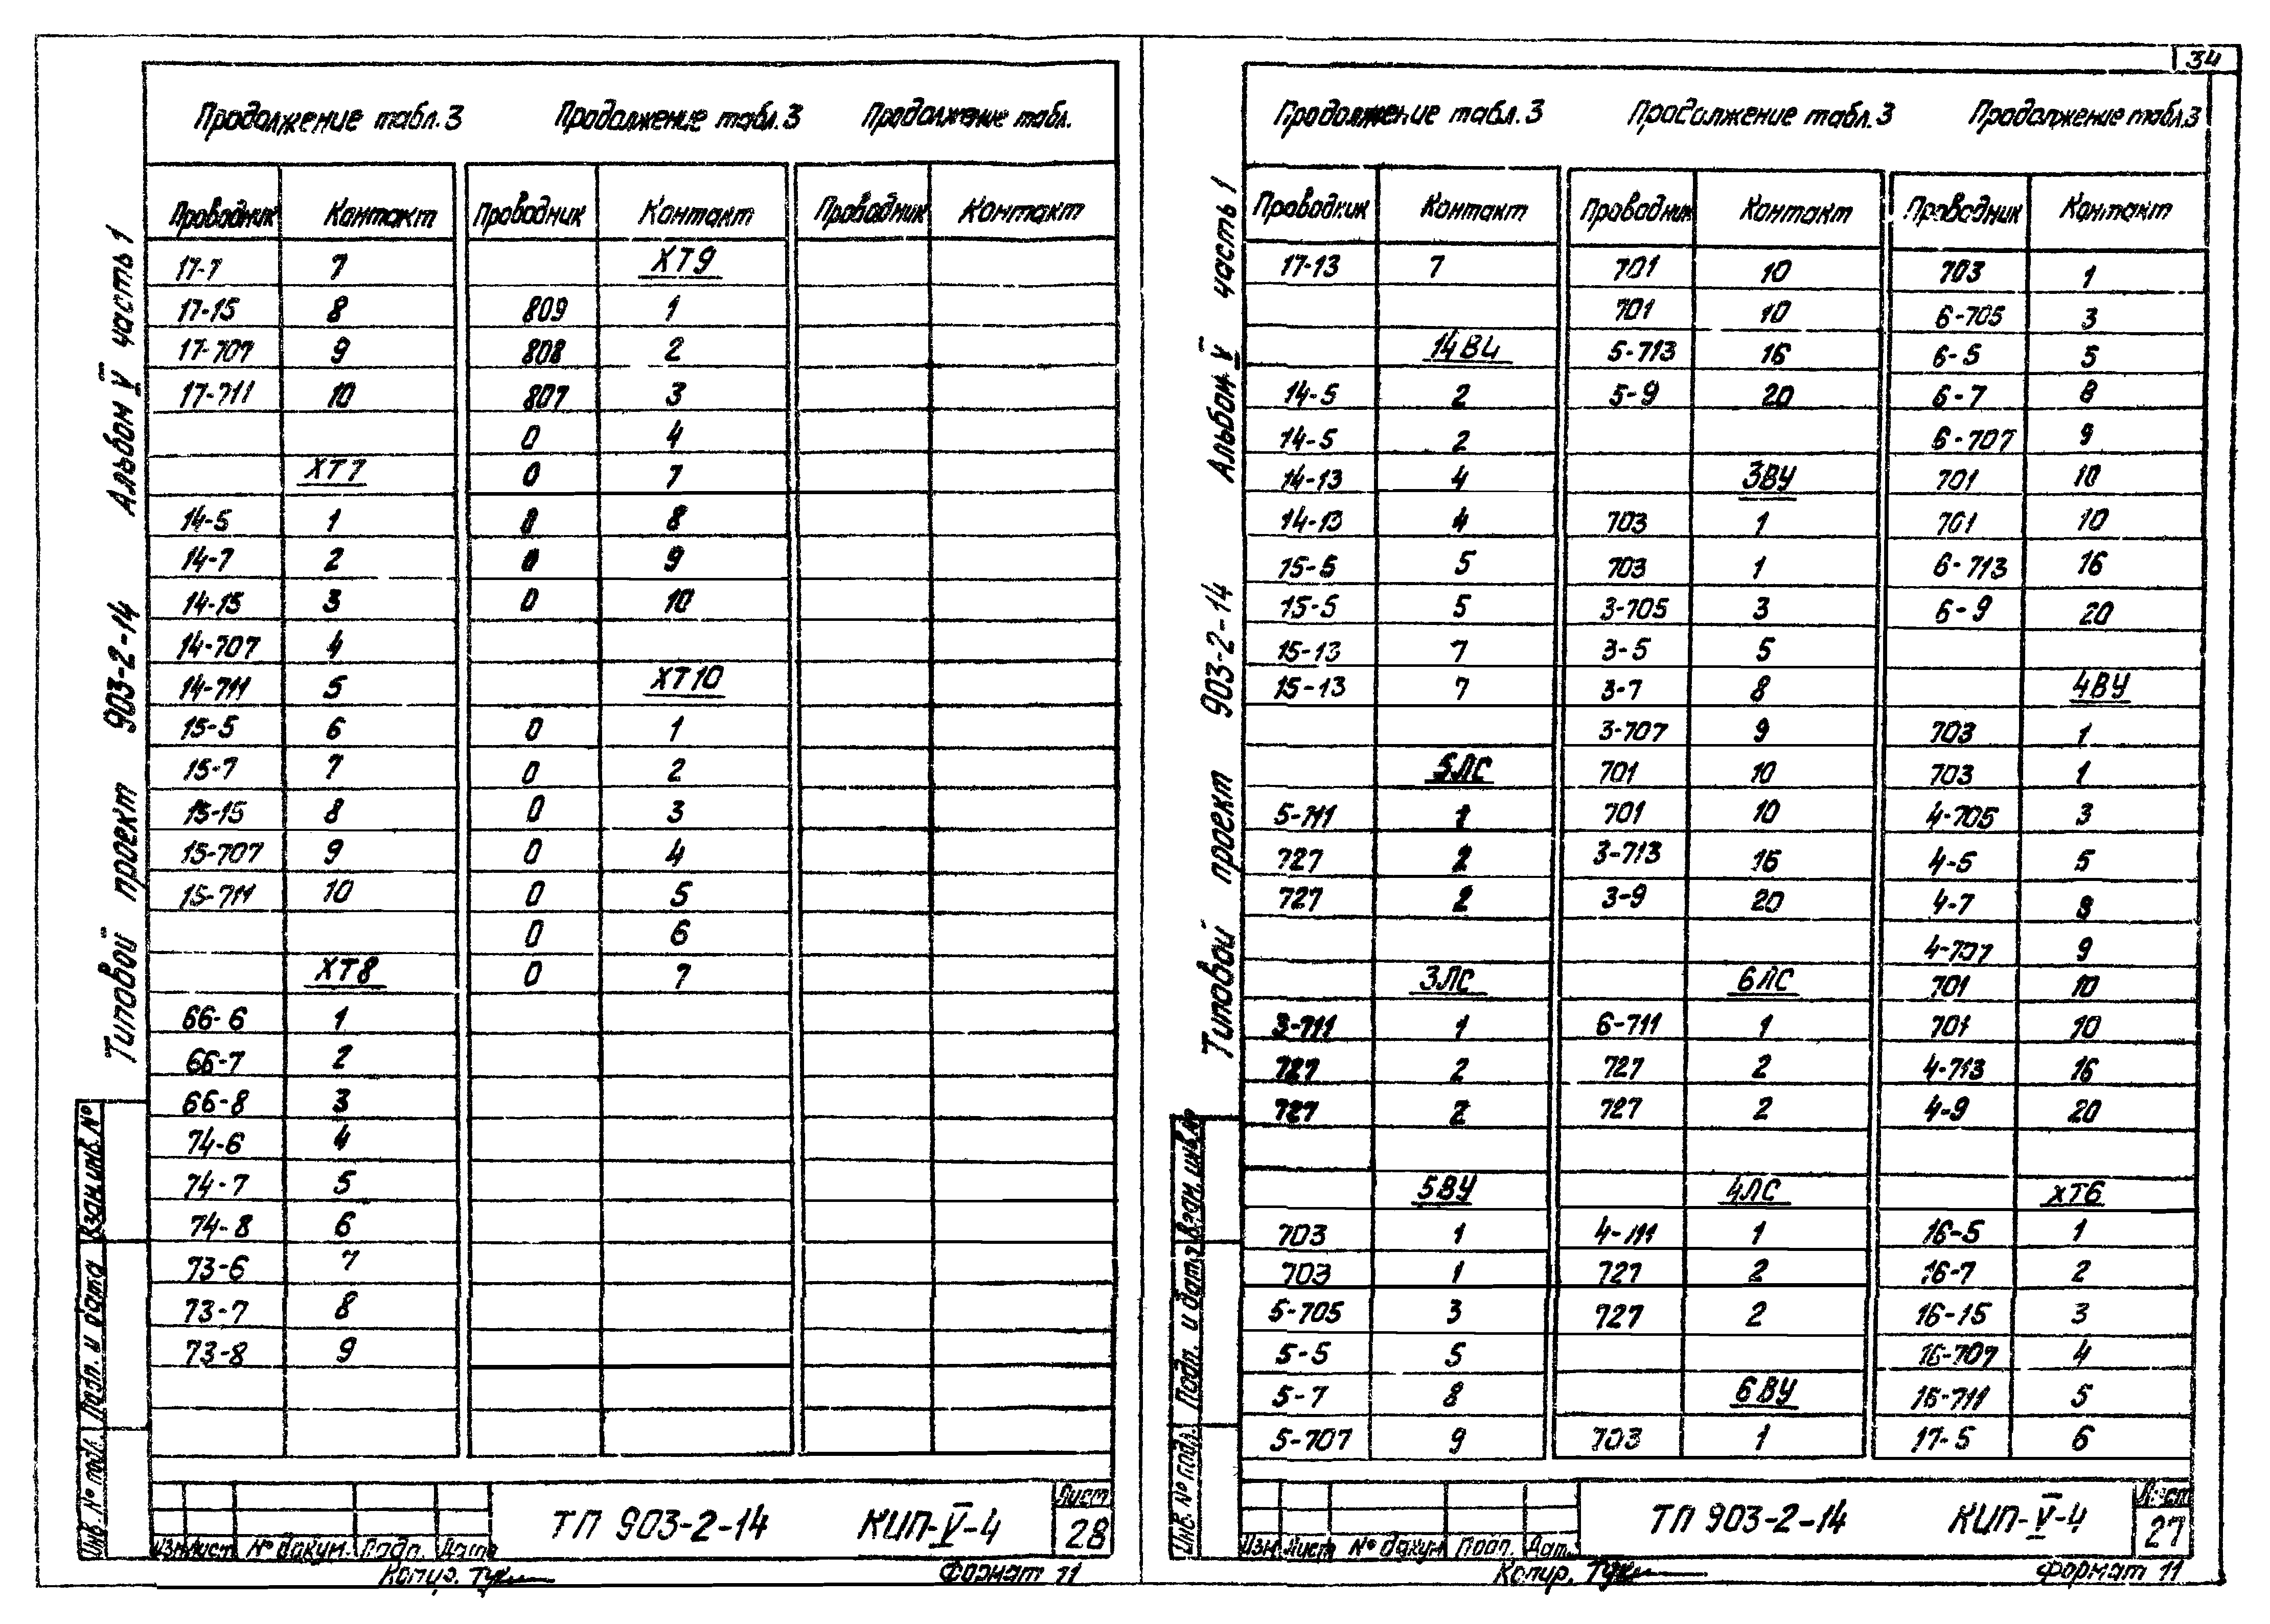 34
Продолжение табл. 3 Продолжение табл. 3 Продолжение табл.
Проводник Контакт Проводник Контакт Проводник Контакт
17-7 7 ХТ9
17-15 8 809 1
17-707 9 808 2
17-711 10 807 3
0 4
ХТ7 0 7
14-5 1 0 8
14-7 2 0 9
14-15 3 0 10
14-707 4
14-711 5 ХТ10
15-5 6 0 1
15-7 7 0 2
15-15 8 0 3
15-707 9 0 4
15-711 10 0 5
0 6
ХТ8 0 7
66-6 1
66-7 2
66-8 3
74-6 4
74-7 5
74-8 6
73-6 7
73-7 8
73-8 9
Типовой проект 903-2-14 Альбом V часть 1
Инв. № подл. Подп. и дата Взам. инв. №
Изм. Лист № докум. Подп. Дата
ТП 903-2-14 КИП-V-4
Лист
28
Копир. Формат 11
Продолжение табл. 3 Продолжение табл. 3 Продолжение табл. 3
Проводник Контакт Проводник Контакт Проводник Контакт
17-13 7 701 10 703 1
701 10 6-705 3
14ВЦ 5-713 16 6-5 5
14-5 2 5-9 20 6-7 8
14-5 2 6-707 9
14-13 4 3ВУ 701 10
14-13 4 703 1 701 10
15-5 5 703 1 6-713 16
15-5 5 3-705 3 6-9 20
15-13 7 3-5 5
15-13 7 3-7 8 4ВУ
3-707 9 703 1
5ЛС 701 10 703 1
5-711 1 701 10 4-705 3
727 2 3-713 16 4-5 5
727 2 3-9 20 4-7 8
4-707 9
3ЛС 6ЛС 701 10
3-711 1 6-711 1 701 10
727 2 727 2 4-713 16
727 2 727 2 4-9 20
5ВУ 4ЛС ХТ6
703 1 4-711 1 16-5 1
703 1 727 2 16-7 2
5-705 3 727 2 16-15 3
5-5 5 16-707 4
5-7 8 6ВУ 16-711 5
5-707 9 703 1 17-5 6
Типовой проект 903-2-14 Альбом V часть 1
Инв. № подл. Подп. и дата Взам. инв. №
Изм. Лист № докум. Подп. Дат.
ТП 903-2-14 КИП-V-4
Лист
27
Копир. Формат 11